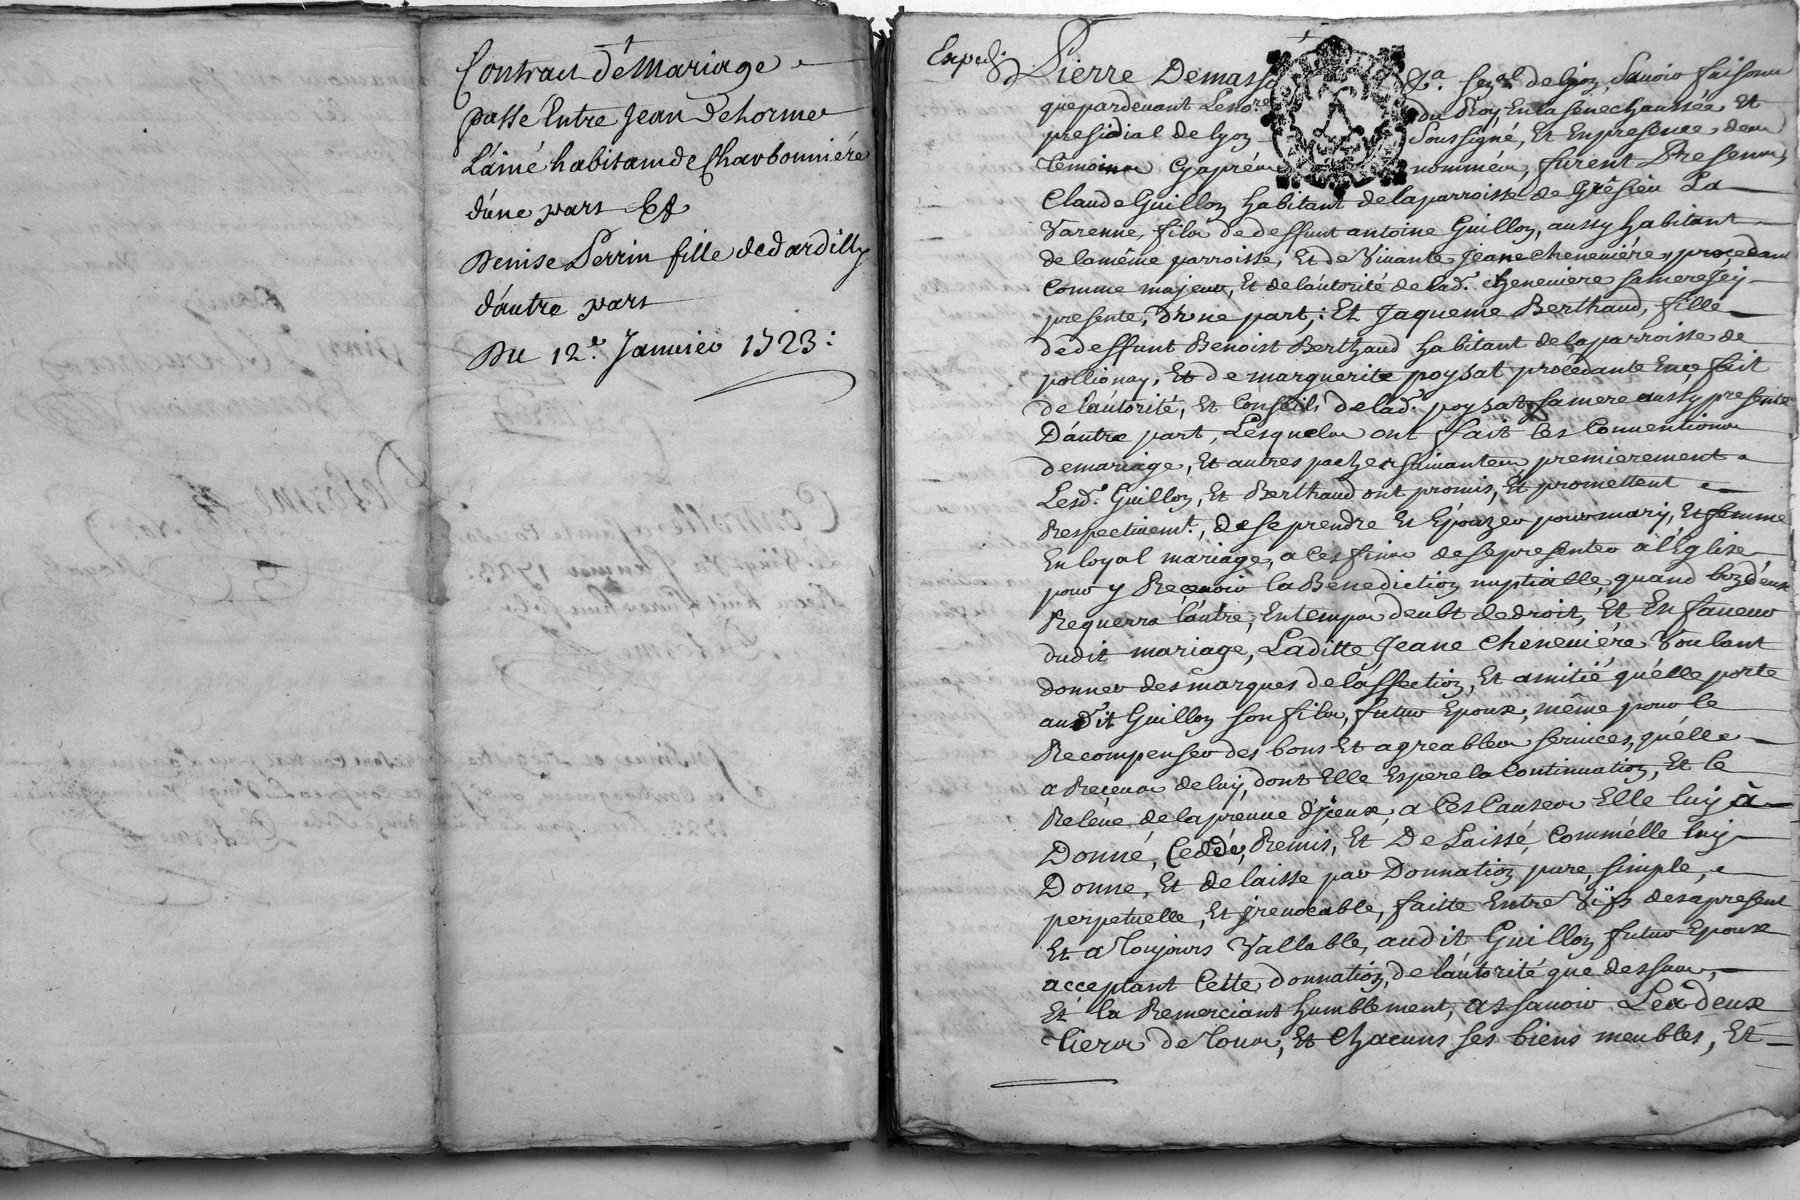 Contract de Mariage
passé Entre Jean Delorme
L'ainé habitant de Charbonniére
d'une part Et
Denise Perrin fille de dardilly
d'autre part
Du 12e. Janvier 1723:
Expedié
Pierre Demasso sengal. de lyon, Savoir faisons
que pardevant Le nore. du Roy En la senechaussée Et
presidial de lyon Soussigné, Et En presence des
Temoins Cyaprés nommés, furent Presens
Claude Guillon habitant de la parroisse de Grêsieu La
Varenne, fils de deffunt antoine Guillon, aussy habitant
de la même parroisse, Et de Vivante Jeane cheneviére, procedant
Comme majeur, Et de l'autorité de lad. cheneviere sa mere Jcy
presente, d'une part,: Et Jaqueme Berthaud, fille
de deffunt Benoist Berthaud habitant de la parroisse de
pollionay, Et de marguerite poysat procédante En ce fait
de l'autorité, Et Conseils de lad. poysat sa mere aussy presente
D'autre part, Lesquels ont fait les Conventions
de mariage, Et autres paches suivantes, premierement
Lesd. Guillon, Et Berthaud ont promis, Et promettent
Respectivemt., de se prendre Et Epouzer pour mary, Et femme
En loyal mariage, a ces fins de se presenter a l'Eglise
pour y Recevoir la Benediction nuptialle, quand L'un d'eux
Requerra l'autre, En temps deubt de droit, Et En faveur
dudit mariage, Laditte Jeane cheneviére Voulant
donner des marques de l'affection, Et amitié qu'elle porte
audit Guillon son fils, futur Epoux, même pour le
Recompenser des bons Et agreables services, qu'elle
a Reçeus de luy, dont Elle Espere la Continuation, Et le
Releve de la preuve d'jceux, a Ces Causes Elle luy à
Donné, Ceddé, Remis, Et De Laissé, Comm'elle luy
Donne, Et delaisse par Donnation pure, simple,
perpetuelle, Et jrevocable, faitte Entre Vifs des apresent
Et a Toujours Vallable, audit Guillon futur Epoux
acceptant Cette donnation, de l'autorité que dessus,
Et la Remerciant humblement, assavoir Les deux
Tiers de Tous, Et Chacuns ses biens meubles, Et